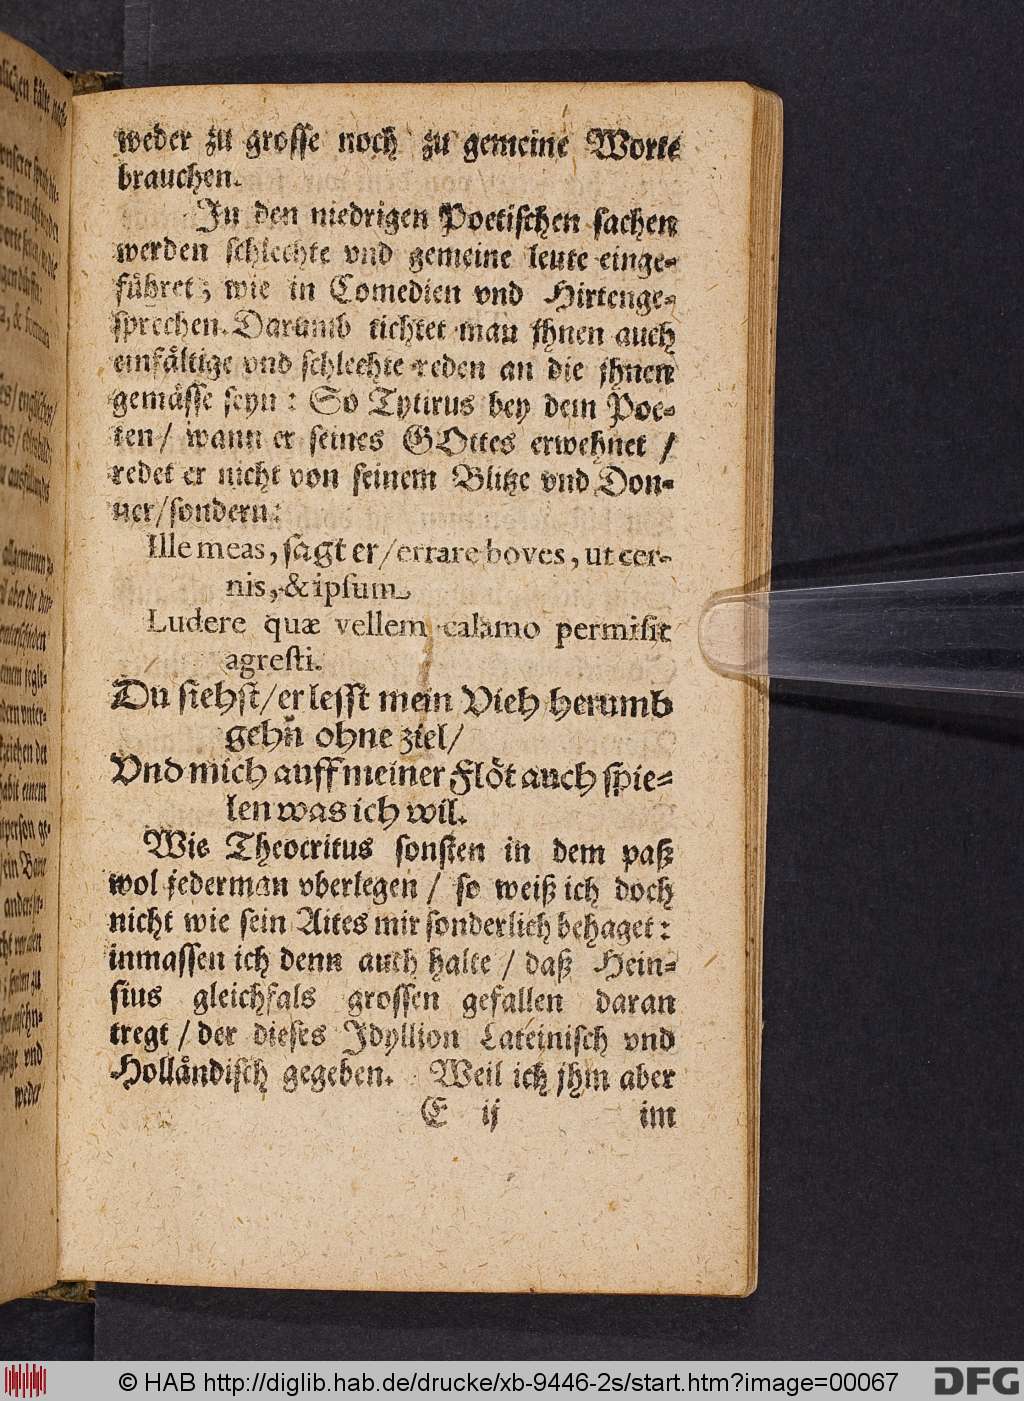 weder zu grosse noch zu gemeine Worte
brauchen.
In den niedrigen Poetischen sachen
werden schlechte vnd gemeine leute einge-
führet; wie in Comedien vnd Hirtenge-
sprechen. Darumb tichtet man jhnen auch
einfältige vnd schlechte reden an die jhnen
gemässe seyn: So Tytirus bey dem Poe-
ten/ wann er seines GOttes erwehnet /
redet er nicht von seinem Blitze vnd Don-
ner/sondern:
Ille meas, sagt er/errare boves, ut cer-
nis, & ipsum
Ludere quæ vellem calamo permisit
agresti.
Du siehst/er lesst mein Vieh herumb
gehn ohne ziel/
Vnd mich auff meiner Flöt auch spie-
len was ich wil.
Wie Theocritus sonsten in dem paß
wol jederman vberlegen / so weiß ich doch
nicht wie sein Aites mir sonderlich behaget:
inmassen ich denn auch halte / daß Hein-
sius gleichfals grossen gefallen daran
tregt / der dieses Idyllion Lateinisch vnd
Holländisch gegeben. Weil ich jhm aber
E ij im
© HAB http://diglib.hab.de/drucke/xb-9446-2s/start.htm?image=00067
DFG